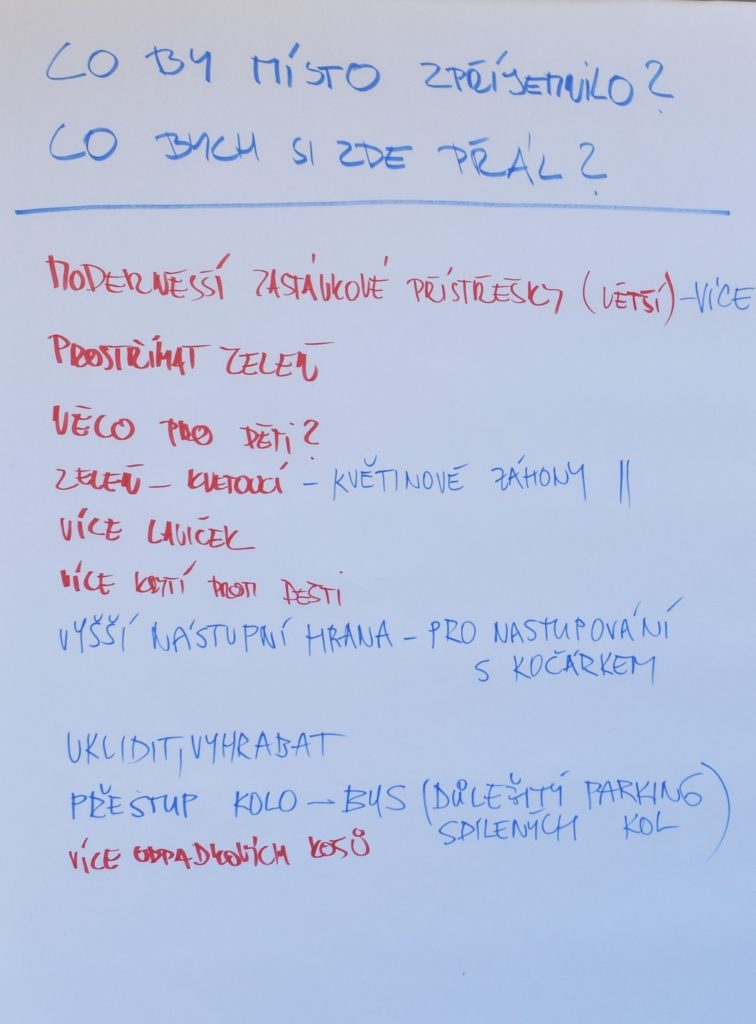 CO BY MÍSTO ZPŘÍJEMNILO?
CO BYCH SI ZDE PŘÁL?
MODERNĚSŠÍ ZASTÁVKOVÉ PŘÍSTŘEŠKY (VĚTŠÍ) - VÍCE
PROSTŘÍHAT ZELEŇ
NĚCO PRO DĚTI?
ZELEŇ - KVETOUCÍ - KVĚTINOVÉ ZÁHONY ||
VÍCE LAVIČEK
VÍCE KRYTÍ PROTI DEŠTI
VYŠŠÍ NÁSTUPNÍ HRANA - PRO NASTUPOVÁNÍ
S KOČÁRKEM
UKLIDIT, VYHRABAT
PŘESTUP KOLO - BUS (DŮLEŽITÝ PARKING
SDÍLENÝCH KOL)
VÍCE ODPADKOVÝCH KOŠŮ